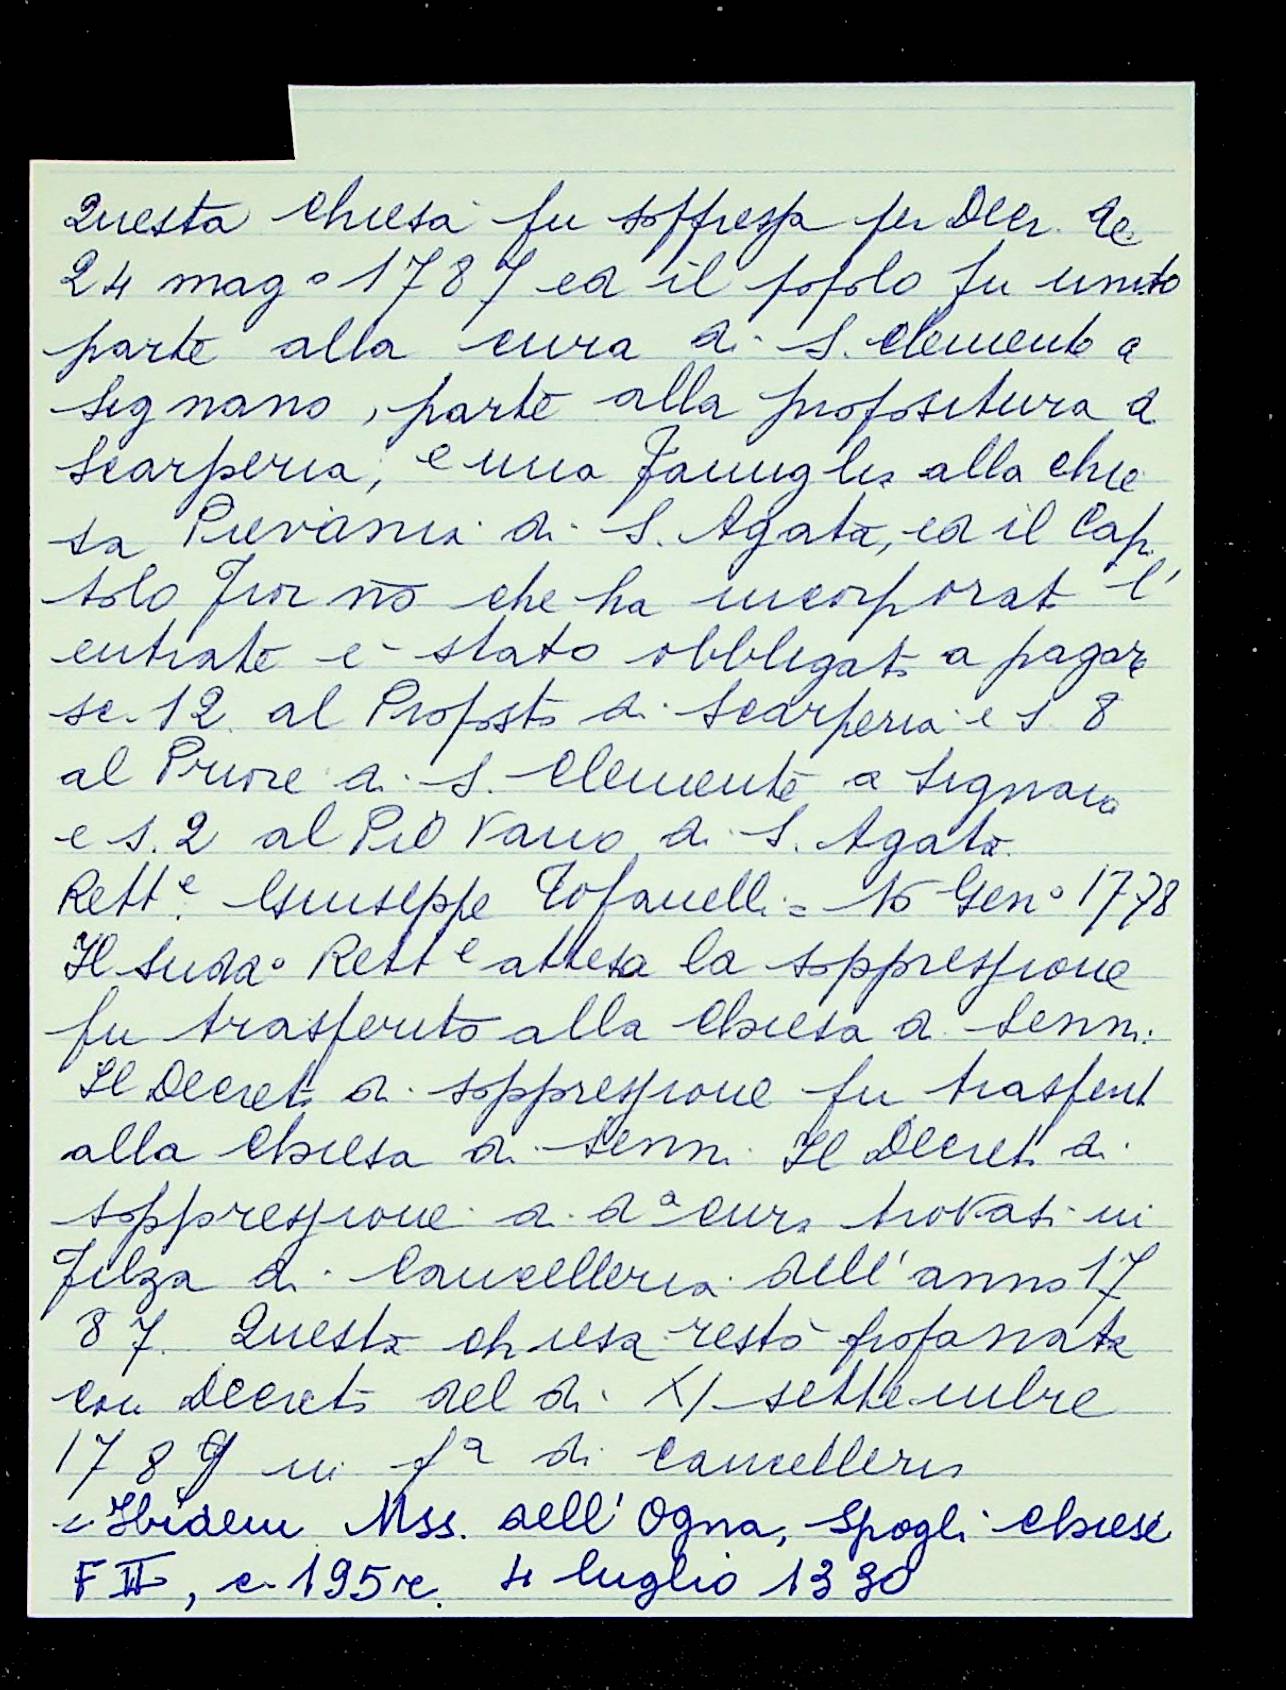 Questa chiesa fu soppressa per Decr. de
24 mag.o 1787 ed il popolo fu unito
parte alla cura di S. Clemente a
Signano, parte alla propositura di
Scarperia, e una famiglia alla chie
sa Pievania di S. Agata, ed il Capi
tolo Fior.no che ha incorporato l'
entrate è stato obbligato a pagare
sc. 12 al Proposto di Scarperia e s. 8
al Priore di S. Clemente a Signano
e s. 2 al Piovano di S. Agata.
Rett.e Giuseppe Tofanelli = 16 Gen.o 1778
Il sudd.o Rett.e attesa la soppressione
fu trasferito alla Chiesa di Senni.
Il Decreto di soppressione fu trasferit
alla Chiesa di Senni. Il Decreto di
soppressione di d.a cura trovasi in
Filza di Cancelleria dell'anno 17
87. Questa chiesa restò profanata
con Decreto del dì XI settembre
1789 in f.a di Cancelleria
Ibidem Mss. dell'Ogna, Spogli Chiese
F III, c. 195 r. 4 luglio 1330